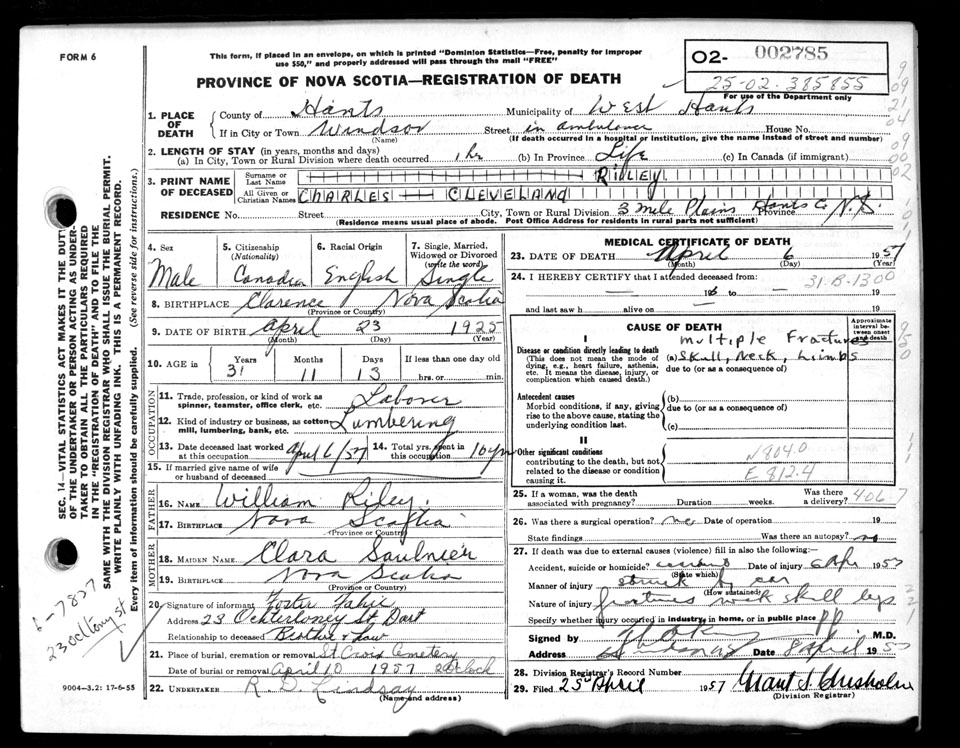 FORM 6
This form, if placed in an envelope, on which is printed "Dominion Statistics—Free, penalty for improper
use $50," and properly addressed will pass through the mail "FREE"
PROVINCE OF NOVA SCOTIA—REGISTRATION OF DEATH
O2- 002785
25-02-385855
For use of the Department only
1. PLACE OF DEATH
County of Hants Municipality of West Hants
If in City or Town Windsor Street in ambulance House No.
(Name) (If death occurred in a hospital or institution, give the name instead of street and number)
2. LENGTH OF STAY (in years, months and days)
(a) In City, Town or Rural Division where death occurred 1 hr (b) In Province Life (c) In Canada (if immigrant)
3. PRINT NAME OF DECEASED
Surname or Last Name RILEY
All Given or Christian Names CHARLES — CLEVELAND
RESIDENCE No. Street City, Town or Rural Division 3 mile Plains Hants Co Province N.S.
(Residence means usual place of abode. Post Office Address for residents in rural parts not sufficient)
4. Sex
Male
5. Citizenship
(Nationality)
Canadian
6. Racial Origin
English
7. Single, Married,
Widowed or Divorced
(write the word)
Single
8. BIRTHPLACE Clarence Nova Scotia
(Province or Country)
9. DATE OF BIRTH April 23 1925
(Month) (Day) (Year)
10. AGE in Years Months Days If less than one day old
31 11 13 hrs. or min.
OCCUPATION
11. Trade, profession, or kind of work as
spinner, teamster, office clerk, etc. Laborer
12. Kind of industry or business, as cotton
mill, lumbering, bank, etc. Lumbering
13. Date deceased last worked
at this occupation April 6/57
14. Total yrs. spent in
this occupation 10 yrs
15. If married give name of wife
or husband of deceased
FATHER
16. NAME William Riley.
17. BIRTHPLACE Nova Scotia
(Province or Country)
MOTHER
18. MAIDEN NAME Clara Saulnier
19. BIRTHPLACE Nova Scotia
(Province or Country)
20. Signature of informant Foster
Address 23 Ochterloney St. Dart
Relationship to deceased Brother Law
21. Place of burial, cremation or removal St Croix Cemetery
Date of burial or removal April 10 1957 2 o'clock
22. UNDERTAKER R. D. Lindsay
(Name and address)
MEDICAL CERTIFICATE OF DEATH
23. DATE OF DEATH April 6 1957
(Month) (Day) (Year)
24. I HEREBY CERTIFY that I attended deceased from:
31-B-1300
19 to 19
and last saw h alive on 19
CAUSE OF DEATH
Approximate interval between onset and death
I
Disease or condition directly leading to death
(This does not mean the mode of
dying, e.g., heart failure, asthenia,
etc. It means the disease, injury, or
complication which caused death.)
Multiple Fractures
(a) Skull, neck, limbs
due to (or as a consequence of)
Antecedent causes
Morbid conditions, if any, giving
rise to the above cause, stating the
underlying condition last.
(b)
due to (or as a consequence of)
(c)
II
Other significant conditions
contributing to the death, but not
related to the disease or condition
causing it.
N804.0
E 812.4
25. If a woman, was the death
associated with pregnancy? Duration weeks. Was there a delivery?
406 7
26. Was there a surgical operation? no Date of operation 19
State findings Was there an autopsy? no
27. If death was due to external causes (violence) fill in also the following:-
Accident, suicide or homicide? accident Date of injury 6 Apr 1957
(State which)
Manner of injury struck by car
(How sustained)
Nature of injury fractures neck skull legs
Specify whether injury occurred in industry, in home, or in public place
Signed by M.D.
Address Date 8 April 1957
28. Division Registrar's Record Number
29. Filed 25 April 1957 Grant S. Chisholm
(Division Registrar)
SEC. 14—VITAL STATISTICS ACT MAKES IT THE DUTY
OF THE UNDERTAKER OR PERSON ACTING AS UNDER-
TAKER TO OBTAIN ALL THE PARTICULARS REQUIRED
IN THE "REGISTRATION OF DEATH" AND TO FILE THE
SAME WITH THE DIVISION REGISTRAR WHO SHALL ISSUE THE BURIAL PERMIT.
WRITE PLAINLY WITH UNFADING INK. THIS IS A PERMANENT RECORD.
Every item of information should be carefully supplied. (See reverse side for instructions.)
9004—3.2: 17-6-55